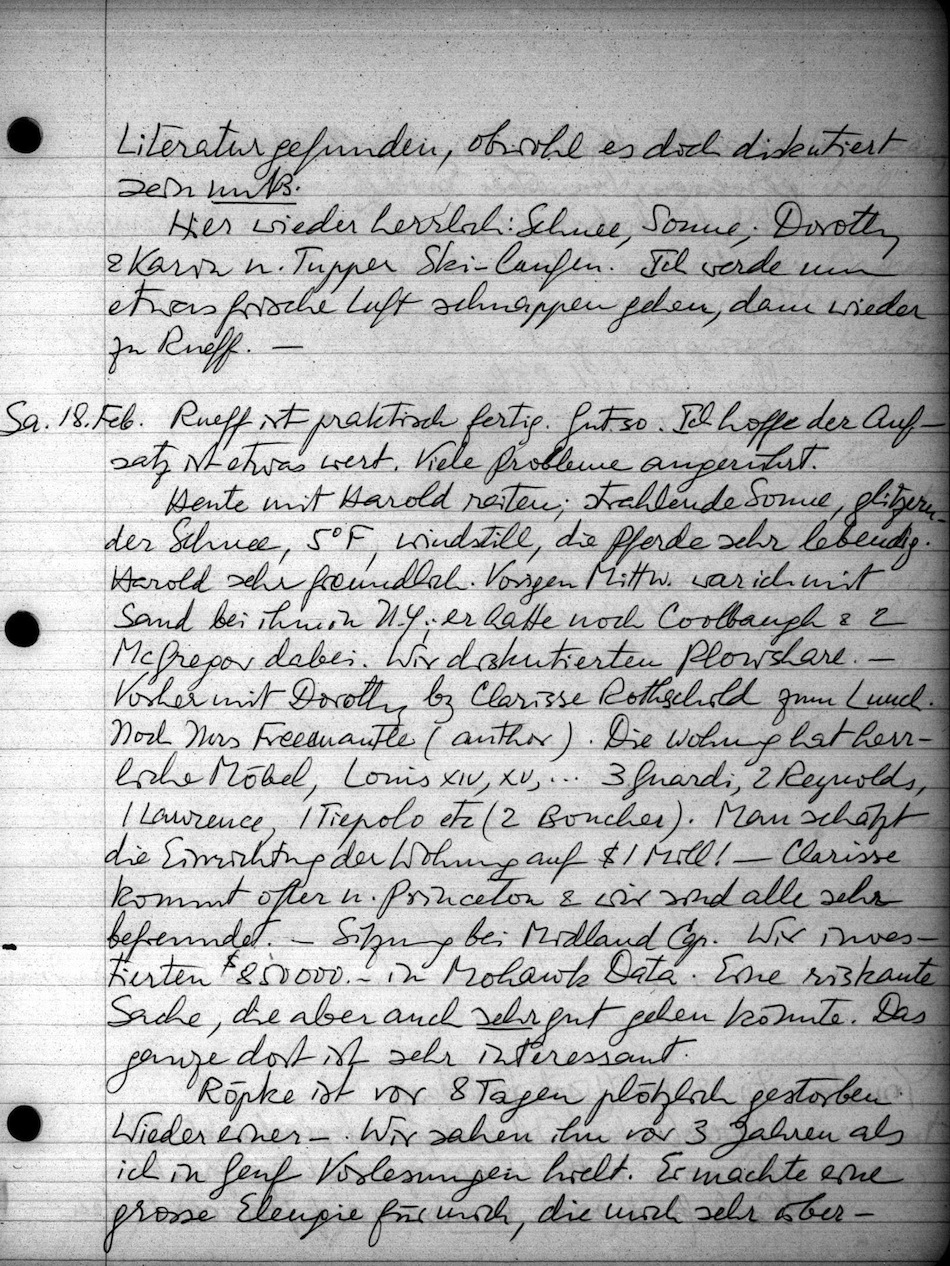 Literatur gefunden, obwohl es doch diskutiert
sein muß.
Hier wieder herrlich: Schnee, Sonne; Dorothy
& Karin n. Tupper Ski-laufen. Ich werde nun
etwas frische Luft schnappen gehen, dann wieder
zu Rueff. —
Sa. 18. Feb. Rueff ist praktisch fertig. Gut so. Ich hoffe der Auf-
satz ist etwas wert. Viele Probleme angerührt.
Heute mit Harold reiten; strahlende Sonne, glitzern-
der Schnee, 5°F, windstill, die Pferde sehr lebendig.
Harold sehr freundlich. Vorigen Mittw. war ich mit
Sand bei ihm in N.Y.; er hatte noch Coolbaugh & 2
McGregor dabei. Wir diskutierten Plowshare. —
Vorher mit Dorothy by Clarisse Rothschild zum Lunch.
Noch Mrs Freemantle (author). Die Wohnung hat herr-
liche Möbel, Louis XIV, XV, ... 3 Guardi, 2 Reynolds,
1 Lawrence, 1 Tiepolo etc (2 Boucher). Man schätzt
die Einrichtung der Wohnung auf $ 1 Mill! — Clarisse
kommt öfter n. Princeton & wir sind alle sehr
befreundet. — Sitzung bei Midland Cap. Wir inves-
tierten $850000.- in Mohawk Data. Eine riskante
Sache, die aber auch sehr gut gehen könnte. Das
ganze dort ist sehr interessant.
Röpke ist vor 8 Tagen plötzlich gestorben.
Wieder einer —. Wir sahen ihn vor 3 Jahren als
ich in Genf Vorlesungen hielt. Er machte eine
grosse Elengie für mich, die mich sehr über-